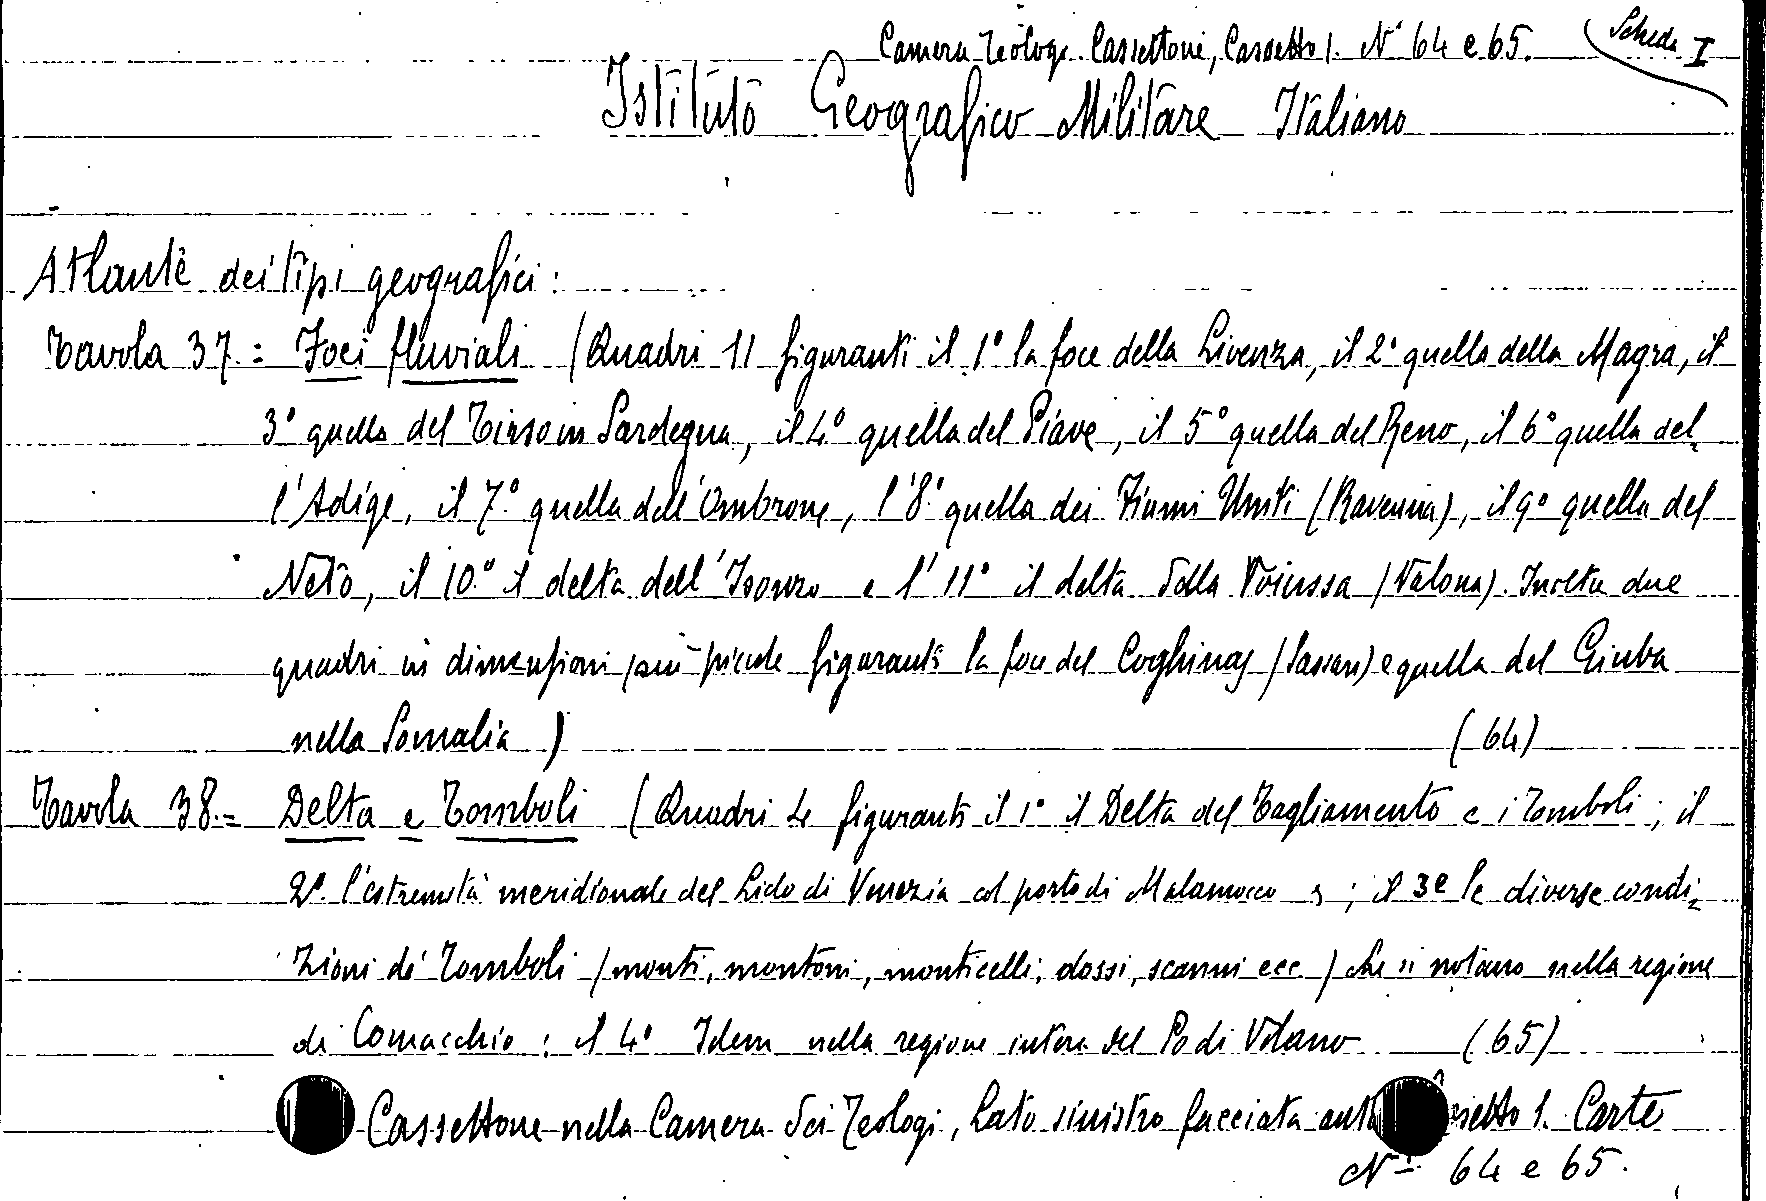 Camera Teologi. Cassettoni, Cassetto 1. N° 64 e 65. Scheda I
Istituto Geografico Militare Italiano
Atlante dei tipi geografici:
Tavola 37. = Foci fluviali (Quadri 11 figuranti il 1° la foce della Livenza, il 2° quella della Magra, il
3° quella del Tirso in Sardegna, il 4° quella del Piave, il 5° quella del Reno, il 6° quella del-
l'Adige, il 7° quella dell'Ombrone, l'8° quella dei Fiumi Uniti (Ravenna), il 9° quella del
Neto, il 10.° il delta dell'Isonzo e l'11° il delta della Voiussa (Valona). Inoltre due
quadri in dimensioni più piccole figuranti la foce del Coghinas (Sassari) e quella del Giuba
nella Somalia) (64)
Tavola 38. = Delta e Tomboli (Quadri 4 figuranti il 1° il Delta del Tagliamento e i Tomboli; il
2°. l'estremità meridionale del Lido di Venezia col porto di Malamocco ; il 3° le diverse condi-
zioni di Tomboli (monti, montoni, monticelli, dossi, scanni ecc.) che si notano nella regione
di Comacchio: il 4° Idem nella regione intera del Po di Volano (65)
Cassettone nella Camera dei Teologi, Lato sinistro facciata 1. Carte
Ni. 64 e 65.